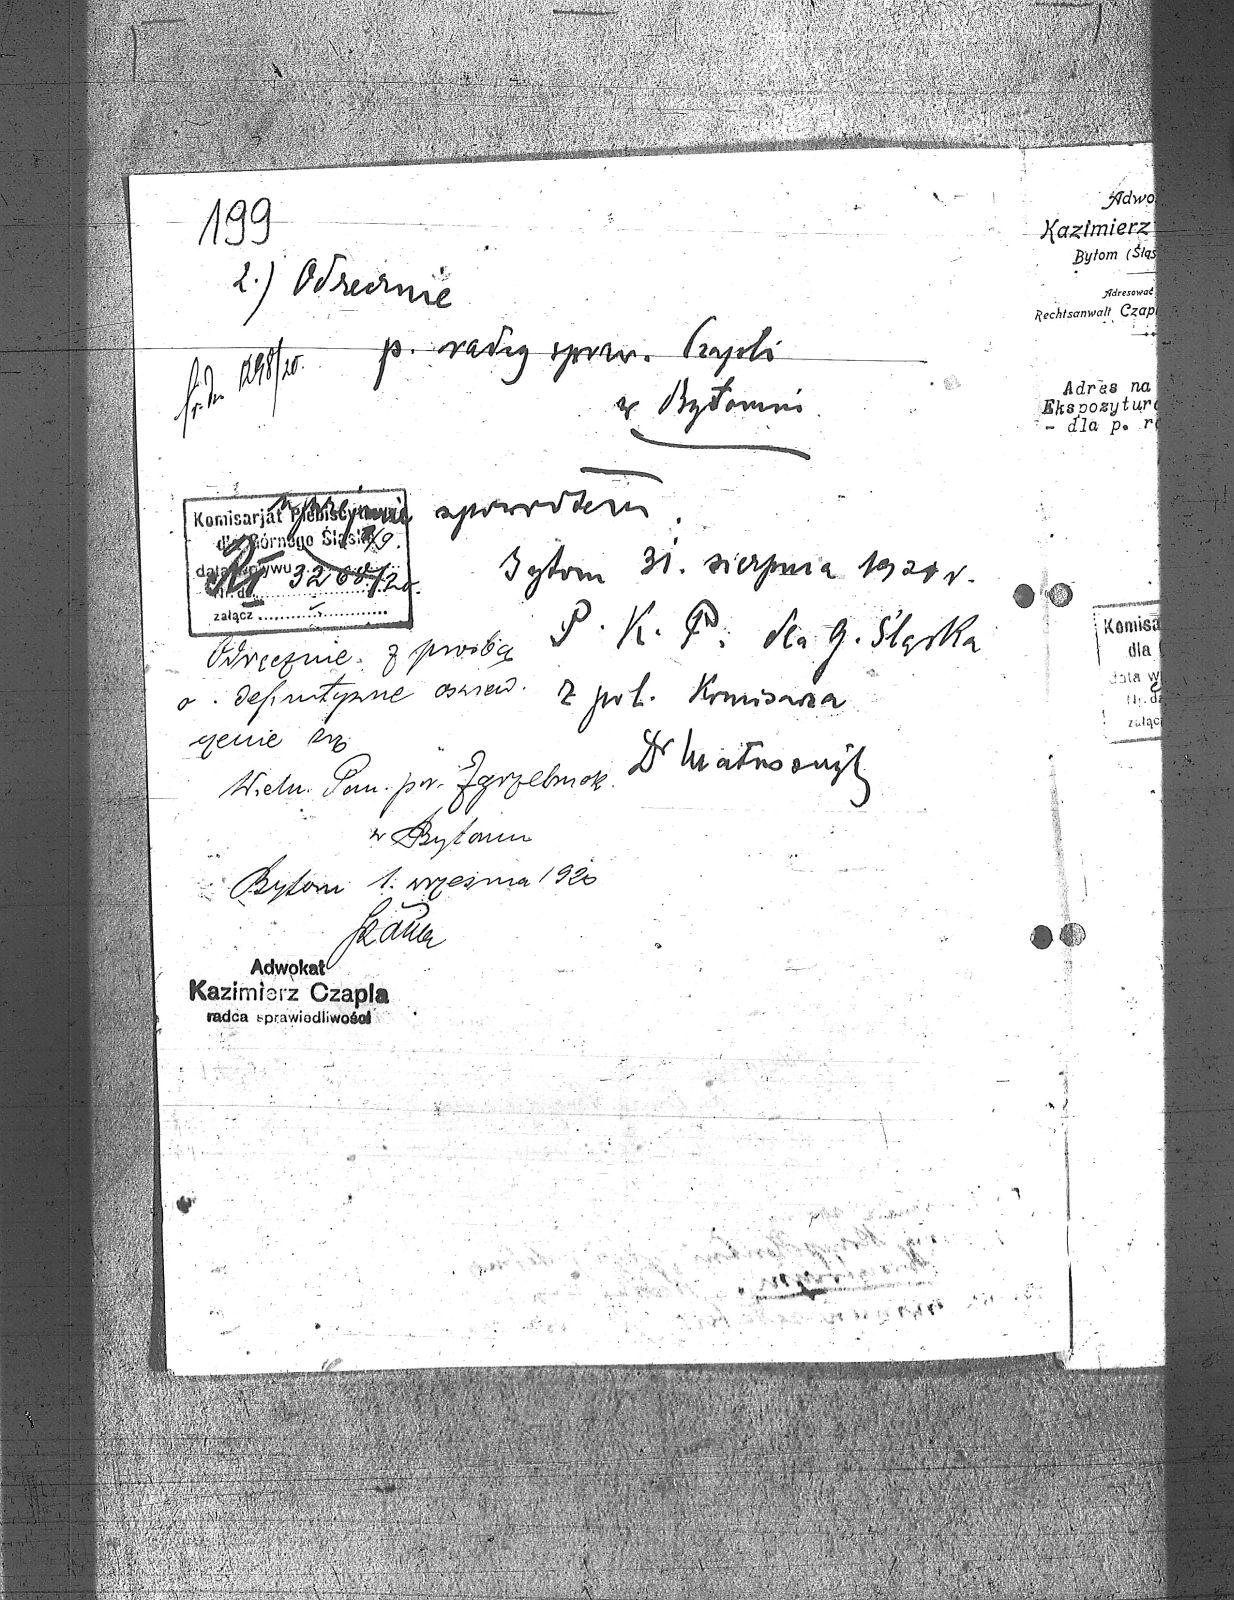 199
2.) Odręcznie
p. radcy spraw. Czapli
w Bytomiu
1298/20.
uprzejmie zpowrotem.
Komisarjat Plebiscytowy
dla Górnego Śląska
data wpływu 1/9.
3268/20.
załącz
Bytom 31. sierpnia 1920 r.
P. K. P. dla G. Śląska
z pol. Komisarza
Dr
Odręcznie z prośbą
o definitywne oświad-
czenie się
Wielm. Pan. por. Zgrzebniok
w Bytomiu
Bytom 1. września 1920
Adwokat
Kazimierz Czapla
radca sprawiedliwości
Adwo
Kazimierz
Bytom (Śląs
Adresować
Rechtsanwalt Czapl
Adres na
Ekspozytura
- dla p. r
Komisa
dla
data w
Nr. dz
załąc